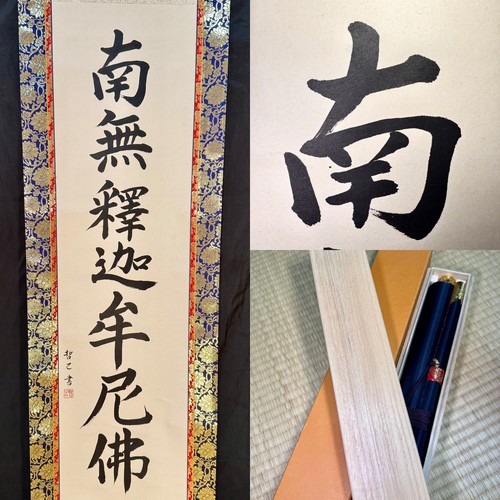 南無釋迦牟尼佛
哲己書
南